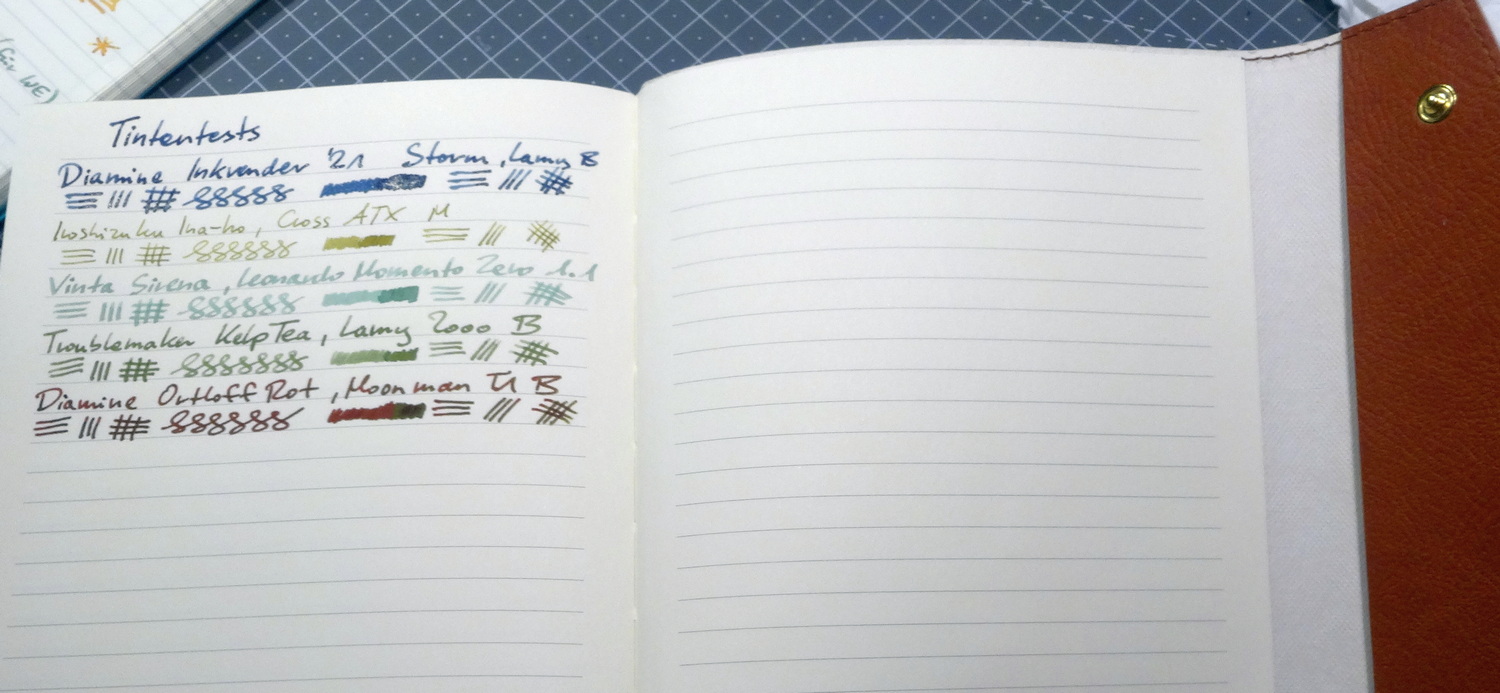 (für WE)
Tintentests
Diamine Inkvender '21 Storm, Lamy B
Iroshizuku Ina-ho, Cross ATX M
Vinta Sirena, Leonardo Momento Zero 1.1
Troublemaker Kelp Tea, Lamy 2000 B
Diamine Ortloff Rot, Moonman T1 B